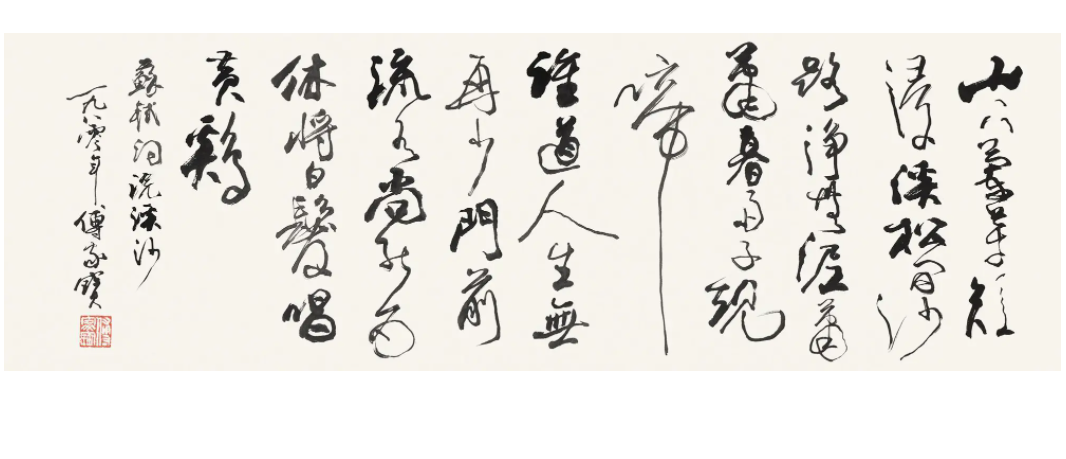 山下蘭芽短
浸溪松間沙
路淨無泥蕭
蕭暮雨子規
啼
誰道人生無
再少門前
流水尚能西
休將白髮唱
黄鷄
蘇軾詞浣溪沙
一九八零年傅家寶